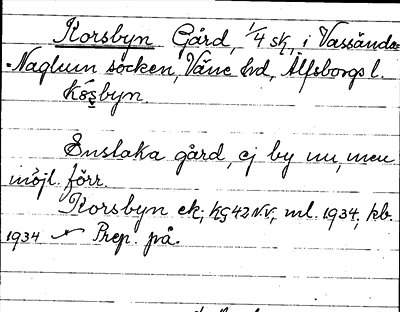 Korsbyn Gård, 1/4 sk, i Vassända=
=Naglum socken, Väne hd, Älfsborgs l.
Kósbyn.
Enstaka gård, ej by nu, men
möjl. förr.
Korsbyn ek; KG 42 NV, ml. 1934, kb.
1934 Prep. på.